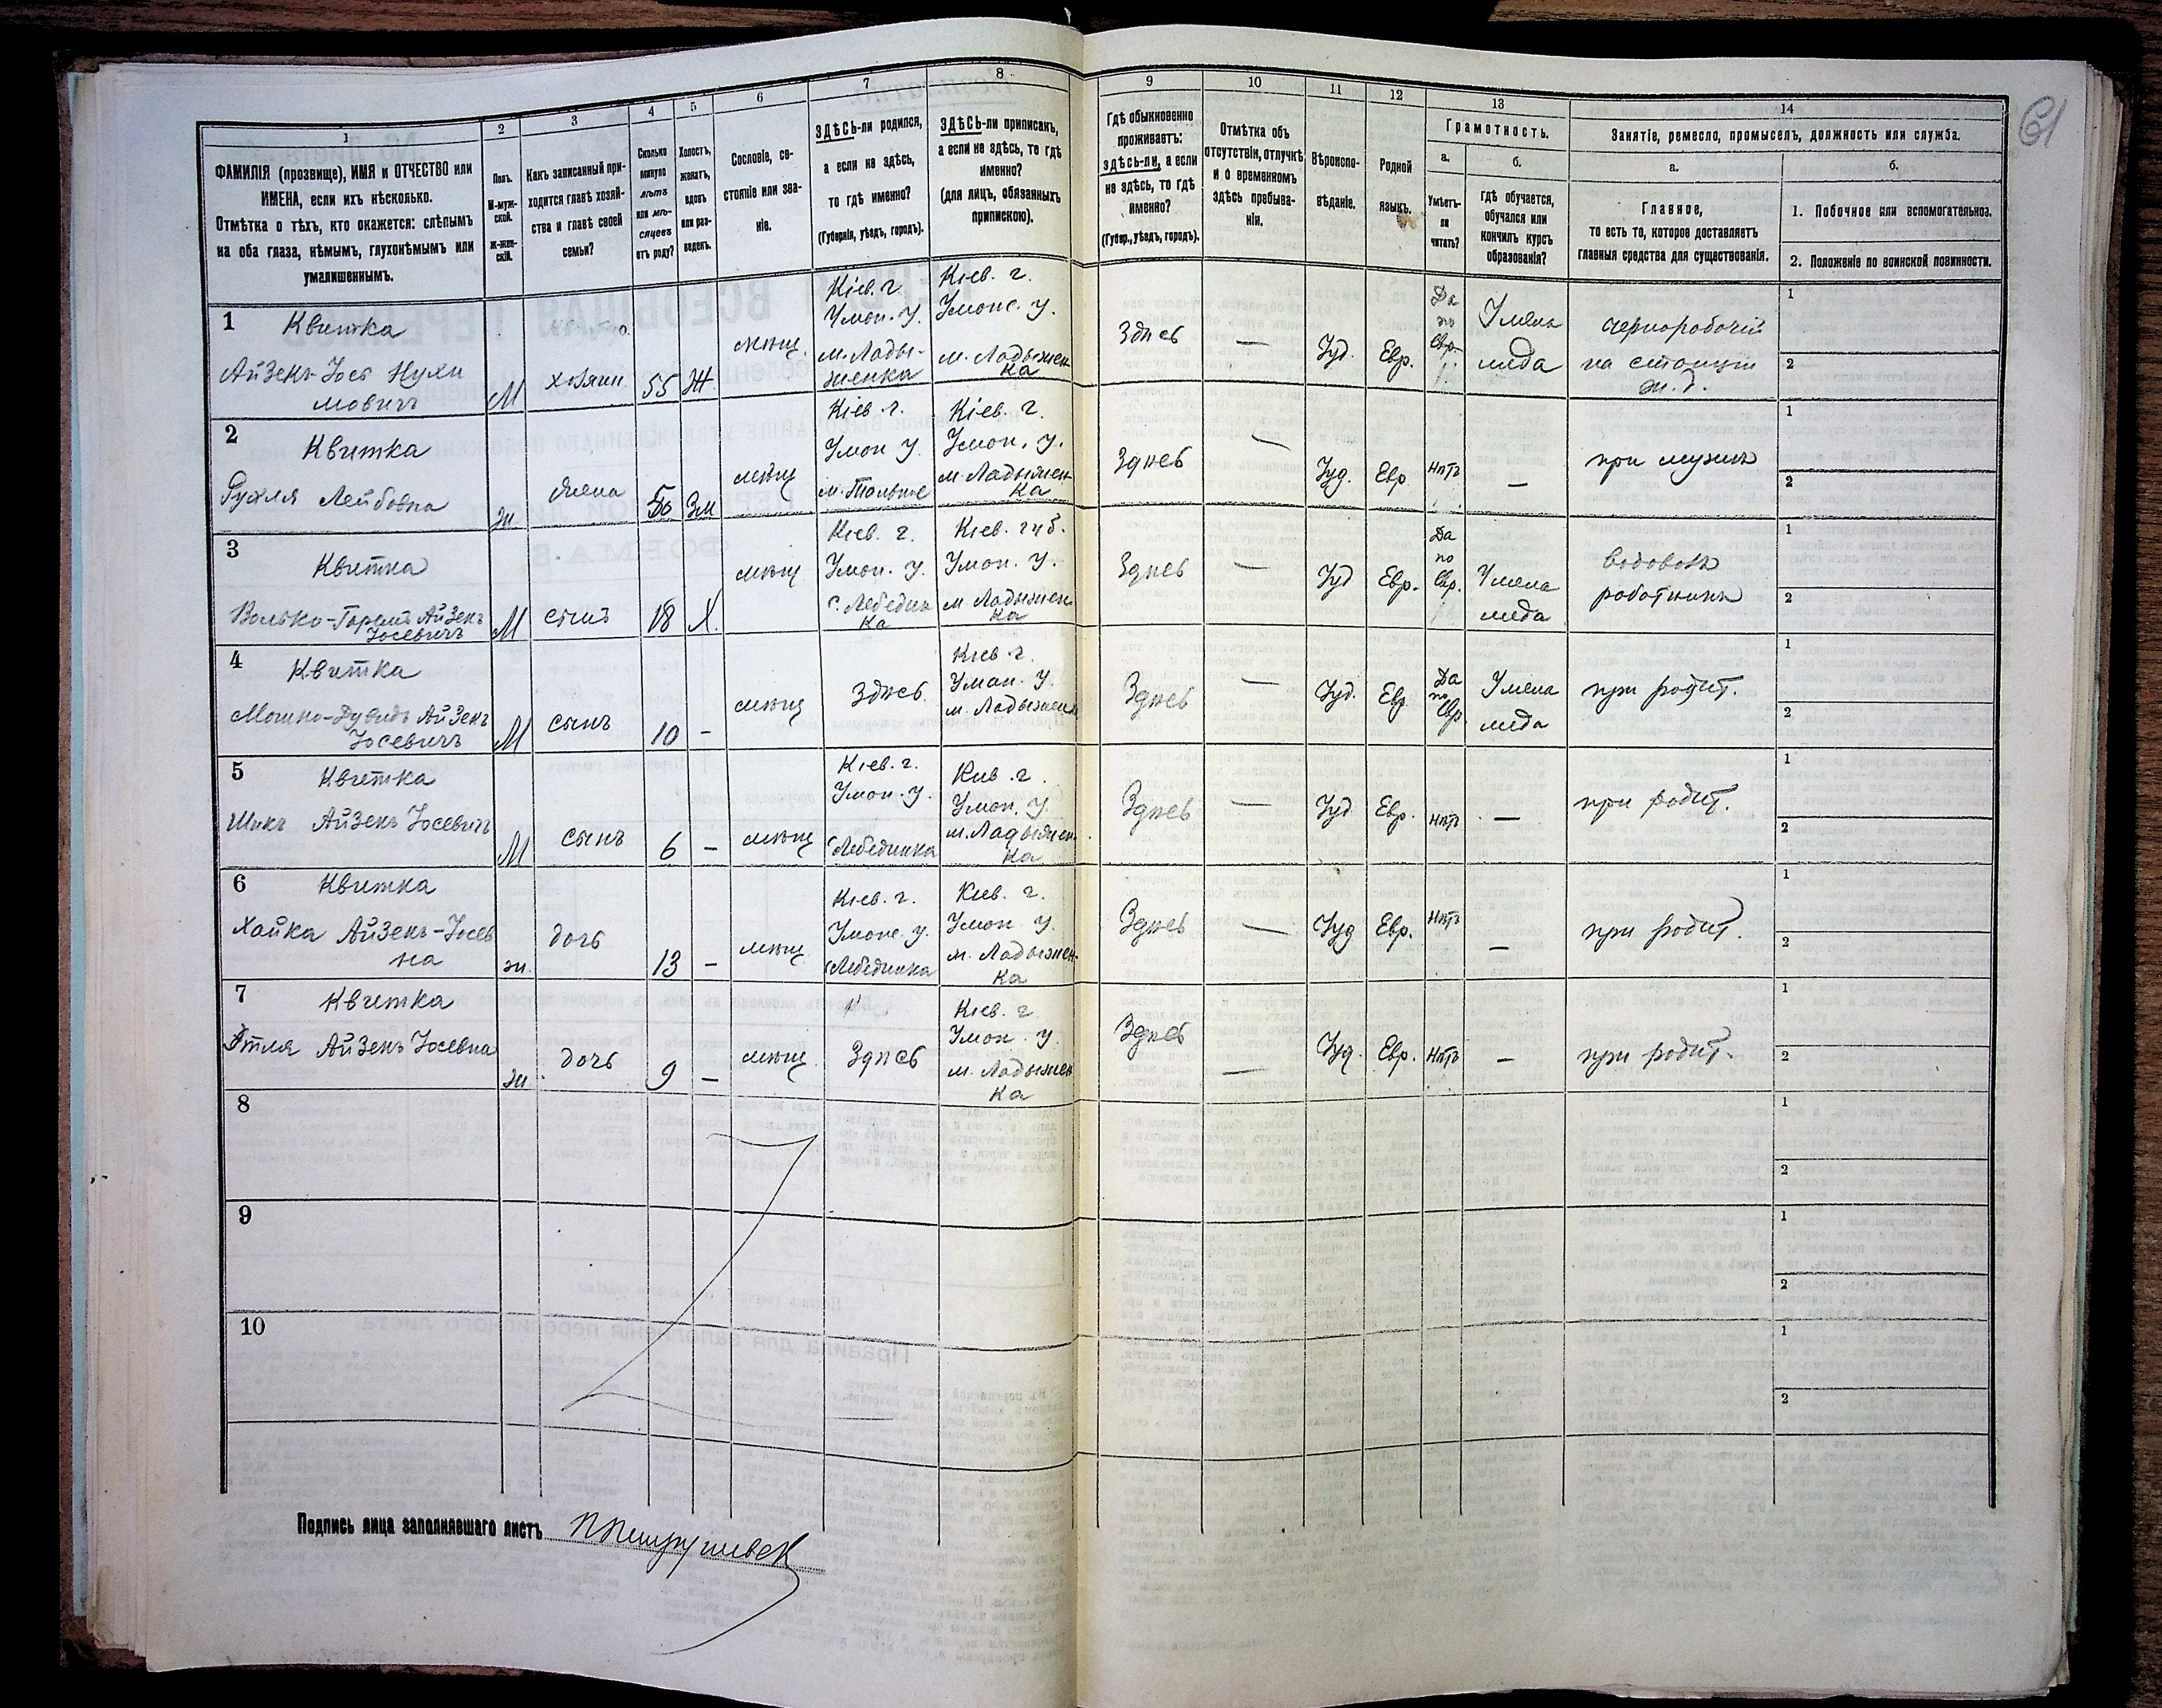 61
1
2
3
4
5
6
7
8
9
10
11
12
13
14
ФАМИЛІЯ (прозвище), ИМЯ и ОТЧЕСТВО или
ИМЕНА, если ихъ нѣсколько.
Отмѣтка о тѣхъ, кто окажется: слѣпымъ
на оба глаза, нѣмымъ, глухонѣмымъ или
умалишеннымъ.
Полъ.
М-муж-
ской.
Ж-жен-
скій.
Какъ записанный при-
ходится главѣ хозяй-
ства и главѣ своей
семьи?
Сколько
минуло
лѣтъ
или мѣ-
сяцевъ
отъ роду?
Холостъ,
женатъ,
вдовъ
или раз-
веденъ.
Сословіе, со-
стояніе или зва-
ніе.
ЗДѢСЬ-ли родился,
а если не здѣсь,
то гдѣ именно?
(Губернія, уѣздъ, городъ).
ЗДѢСЬ-ли приписанъ,
а если не здѣсь, то гдѣ
именно?
(для лицъ, обязанныхъ
припискою).
Гдѣ обыкновенно
проживаетъ:
здѣсь-ли, а если
не здѣсь, то гдѣ
именно?
(Губер., уѣздъ, городъ).
Отмѣтка объ
отсутствіи, отлучкѣ
и о временномъ
здѣсь пребыва-
ніи.
Вѣроиспо-
вѣданіе.
Родной
языкъ.
Грамотность.
а.
Умѣетъ-
ли
читать?
б.
Гдѣ обучается,
обучался или
кончилъ курсъ
образованія?
Занятіе, ремесло, промыселъ, должность или служба.
а.
Главное,
то есть то, которое доставляетъ
главныя средства для существованія.
б.
1. Побочное или вспомогательное.
2. Положеніе по воинской повинности.
1
Квитка
Айзенъ-Іось Нухи
мовичъ
М
хозяин
55
Ж
мѣщ.
Кіев. г.
Умон. у.
м. Лады-
женка
Кіев. г.
Умонс. у.
м. Ладыжен
ка
Здѣсь
—
Іуд.
Евр.
Да
по
Евр.
У мела
меда
чернорабочій
на станціи
ж. д.
1
2
2
Квитка
Рухля Лейбовна
ж
жена
50
Зм
мѣщ
Кіев. г.
Умон у.
м. Тальное
Кіев. г.
Умон. у.
м. Ладыжен
ка
Здѣсь
—
Іуд.
Евр
Нѣтъ
—
при мужѣ
1
2
3
Квитка
Айзенъ
Іосевичъ
М
сынъ
18
Х.
мѣщ
Кіев. г.
Умон. у.
с. Лебедин
ка
Кіев. губ.
Умон. у.
м Ладыжен
ка
Здѣсь
—
Іуд
Евр.
Да
по
Евр.
У мела
меда
водовозъ
работникъ
1
2
4
Квитка
Мошко-Дувидъ Айзенъ
Іосевичъ
М
сынъ
10
-
мѣщ
Здѣсь
Кіев г.
Умон. у.
м. Ладыжен
Здѣсь
—
Іуд.
Евр
Да
по
Евр.
У мела
меда
при родит.
1
2
5
Квитка
Айзенъ Іосевичъ
М
сынъ
6
-
мѣщ
Кіев. г.
Умон. у.
Лебединка
Кіев. г.
Умон. у.
м. Ладыжен
ка
Здѣсь
—
Іуд
Евр.
Нѣтъ
—
при родит.
1
2
6
Квитка
Хайка Айзенъ-Іосев
на
ж.
дочь
13
-
мѣщ
Кіев. г.
Умонс. у.
Лебединка
Кіев. г.
Умон. у.
м. Ладыжен-
ка
Здѣсь
—
Іуд
Евр.
Нѣтъ
—
при родит.
1
2
7
Квитка
Этля Айзенъ Іосевна
ж
дочь
9
-
мѣщ.
Здѣсь
Кіев. г
Умон. у.
м. Ладыжен
ка
Здѣсь
—
Іуд.
Евр.
Нѣтъ
—
при родит.
1
2
8
1
2
9
1
2
10
1
2
Подпись лица заполнявшаго листъ